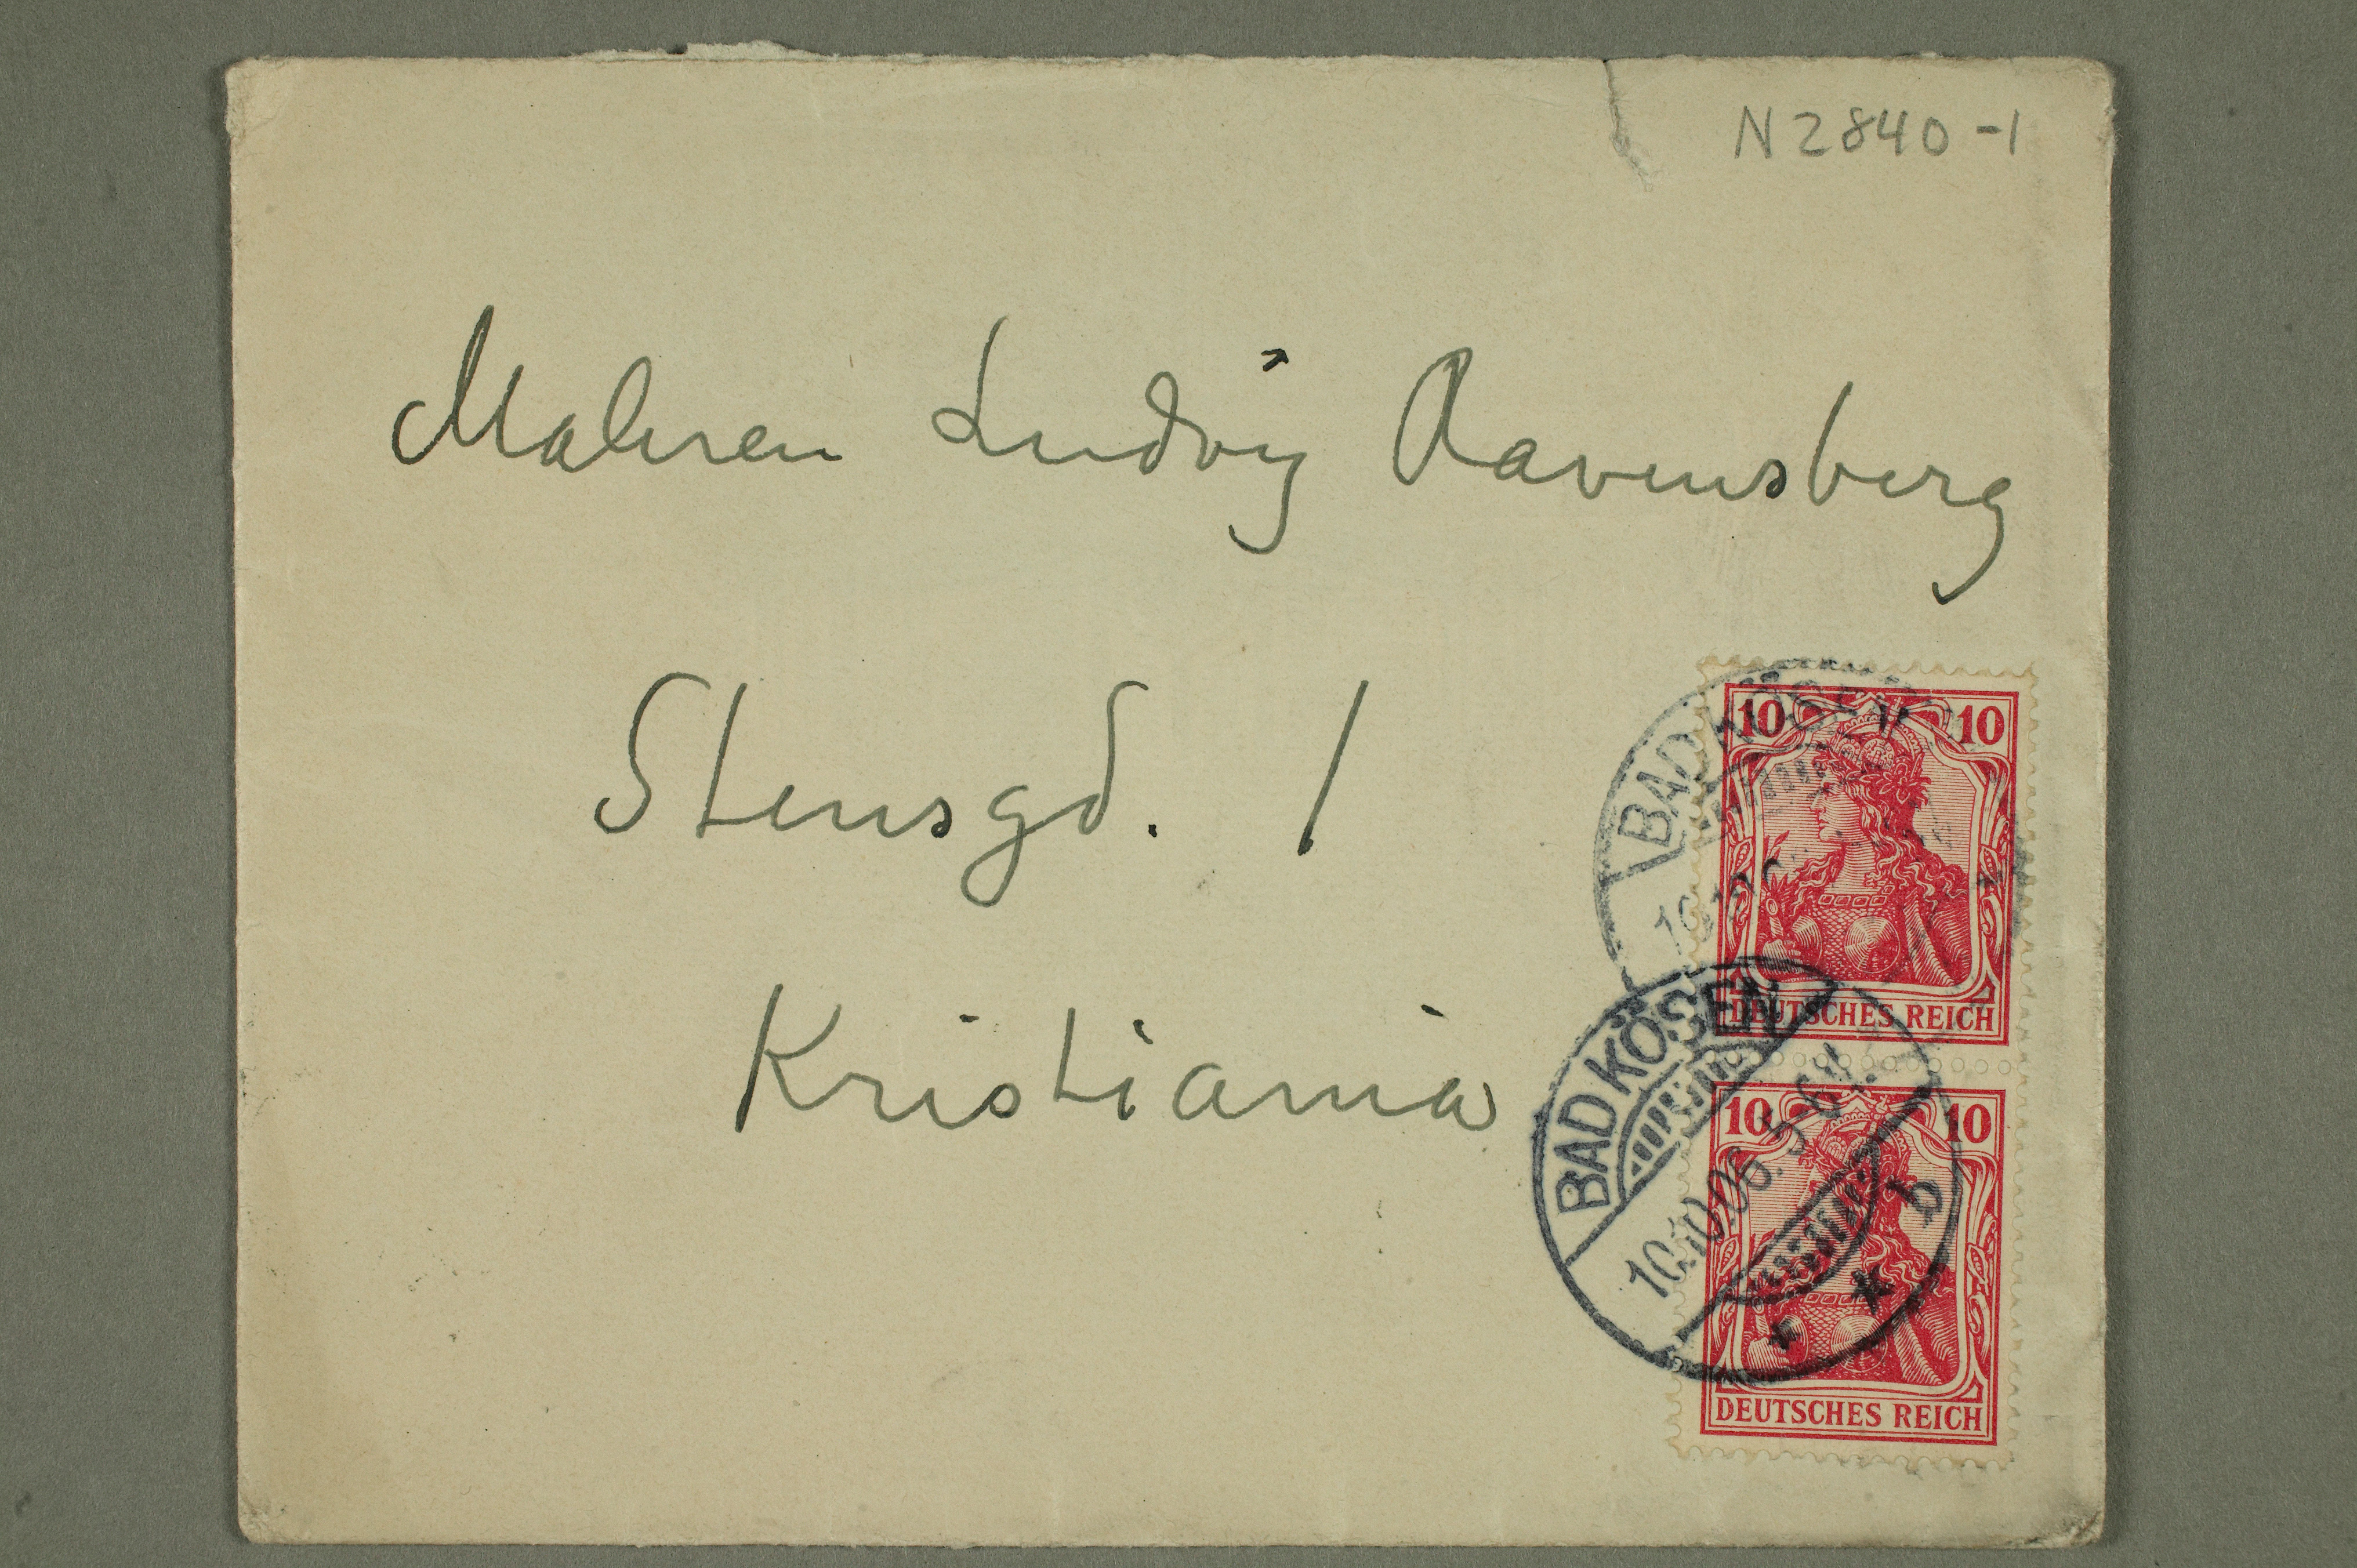 N 2840-1
Maleren Ludvig Ravensberg
Stensgd. 1
Kristiania
10 10
BAD KÖSEN
DEUTSCHES REICH
BAD KÖSEN
10.10.06. 5-6N.
b
10 10
DEUTSCHES REICH